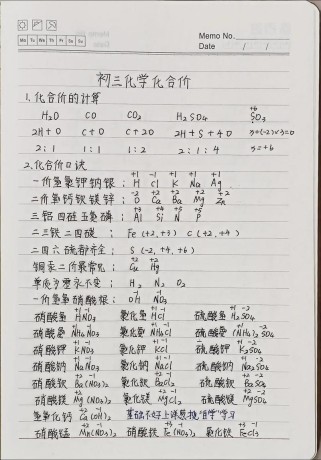 Memo No.
Mo Tu We Th Fr Sa Su
Date / /
初三化学化合价
1.化合价的计算
H₂O CO CO₂ H₂SO₄ SO₃ +6
2H+O C+O C+2O 2H+S+4O x+(-2)×3=0
2:1 1:1 1:2 2:1:4 x=+6
2.化合价口诀
一价氢氯钾钠银: H+1 Cl-1 K+1 Na+1 Ag+1
二价氧钙钡镁锌: O-2 Ca+2 Ba+2 Mg+2 Zn+2
三铝四硅五氮磷: Al+3 Si+4 N+5 P+5
二三铁二四碳: Fe(+2,+3) C(+2,+4)
二四六硫都齐全: S(-2,+4,+6)
铜汞二价最常见: Cu+2 Hg+2
单质为零永不变: H₂ N₂ O₂
一价氢氧硝酸根: OH-1 NO₃-1
硝酸氢 HNO₃ 氯化氢 HCl 硫酸氢 H₂SO₄
硝酸铵 NH₄NO₃ 氯化铵 NH₄Cl 硫酸铵 (NH₄)₂SO₄
硝酸钾 KNO₃ 氯化钾 KCl 硫酸钾 K₂SO₄
硝酸钠 NaNO₃ 氯化钠 NaCl 硫酸钠 Na₂SO₄
硝酸钡 Ba(NO₃)₂ 氯化钡 BaCl₂ 硫酸钡 BaSO₄
硝酸镁 Mg(NO₃)₂ 氯化镁 MgCl₂ 硫酸镁 MgSO₄
氢氧化钙 Ca(OH)₂ 基础不好上课思挑"自学"学习
硝酸锰 Mn(NO₃)₂ 硝酸铁 Fe(NO₃)₃ 氯化铁 FeCl₃